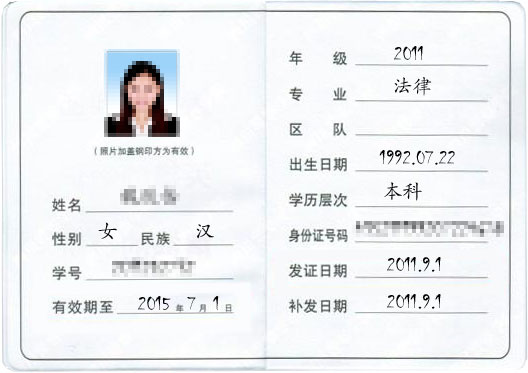 (照片加盖钢印方为有效)
姓名
性别 女 民族 汉
学号
有效期至 2015年7月1日
年级 2011
专业 法律
区队
出生日期 1992.07.22
学历层次 本科
身份证号码
发证日期 2011.9.1
补发日期 2011.9.1